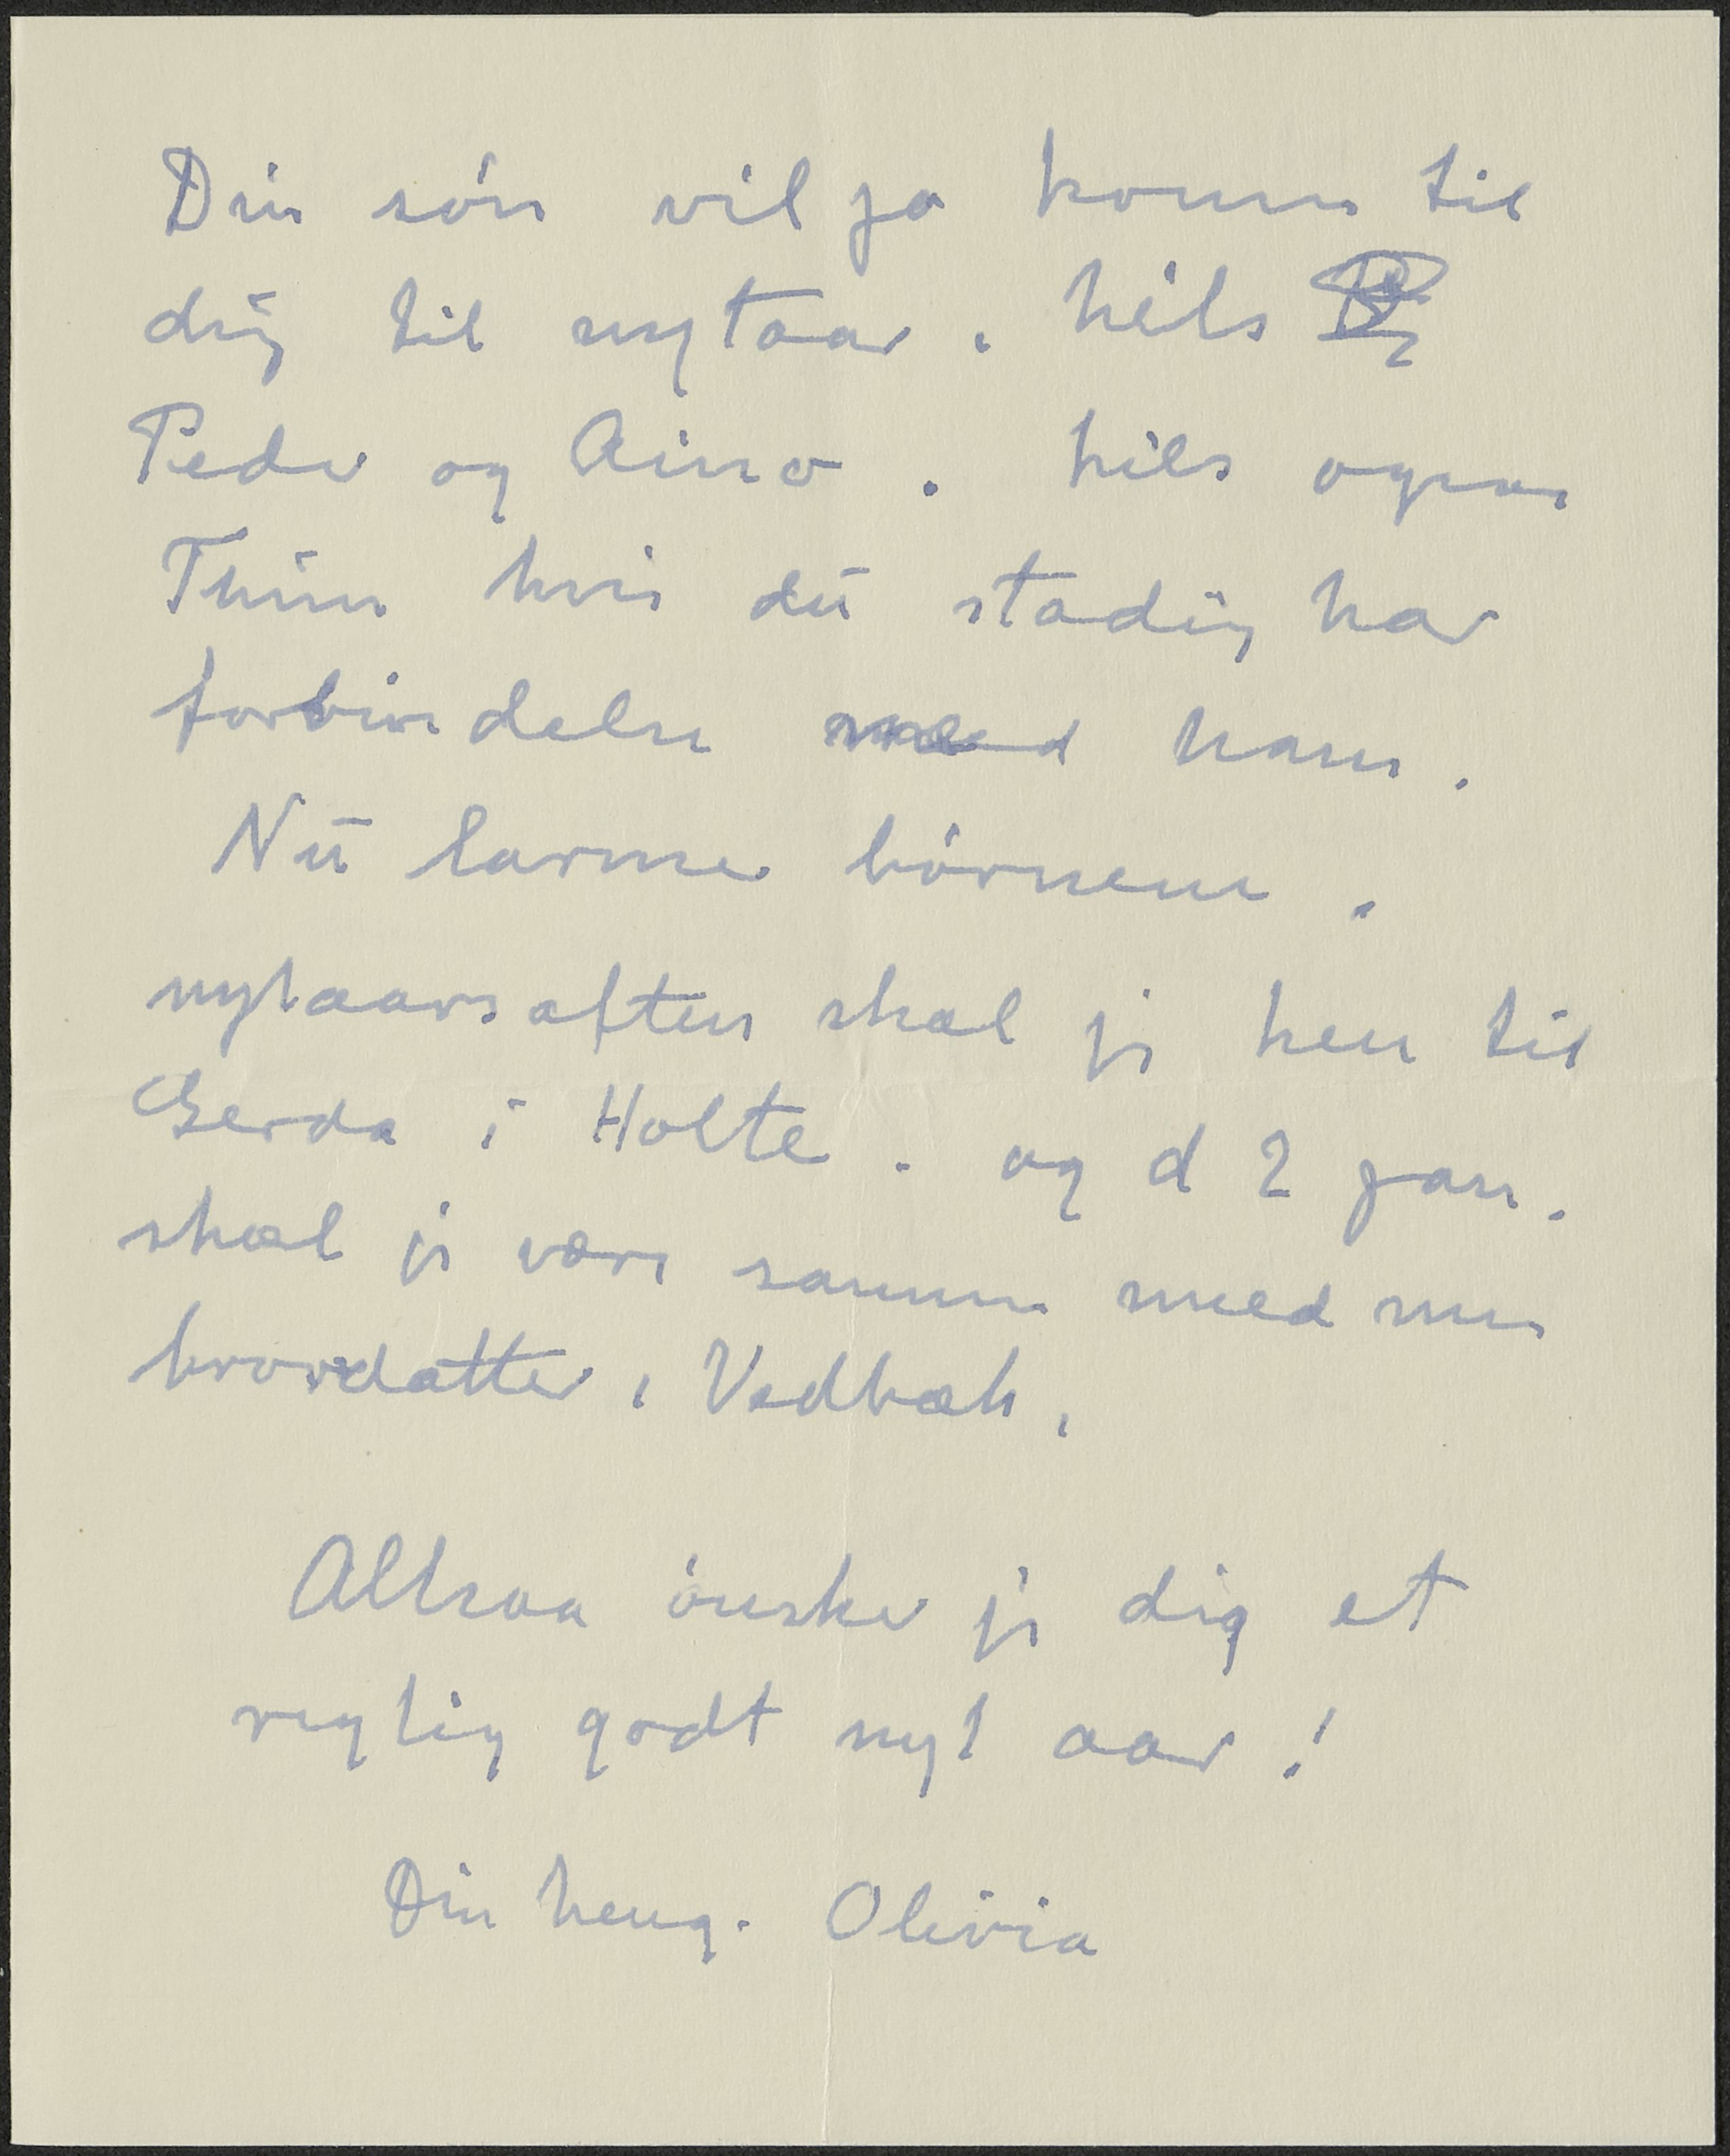 Din søn vil jo komme til
dig til nytaar. hils
Peder og Aino. hils ogsaa
hvis du stadig har
forbindelse med ham.
Nu larmer børnene.
nytaarsaften skal jeg hen til
Gerda i Holte. og d 2 jan.
skal jeg være sammen med min
brordatter i Vedbæk.
Altsaa ønsker jeg dig et
rigtig godt nyt aar!
Din heng. Olivia